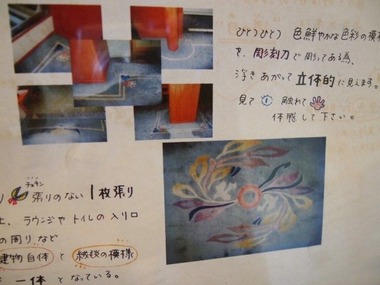 ひとつひとつ 色鮮やかな色彩の模様
を、彫刻刀で彫ってある為、
浮きあがって立体的に見えます。
見て 触れて
体感して下さい。
チョキン
張りのない 1枚張り
上、ラウンジやトイレの入り口
の周りなど
建物自体 と 絨毯の模様
一体となっている。